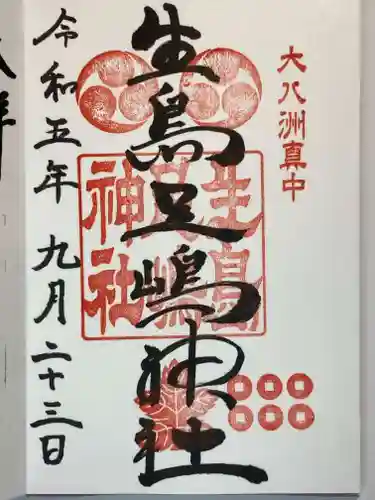 大八洲真中
生島足嶋神社
生島足嶋神社
令和五年九月二十三日
拝